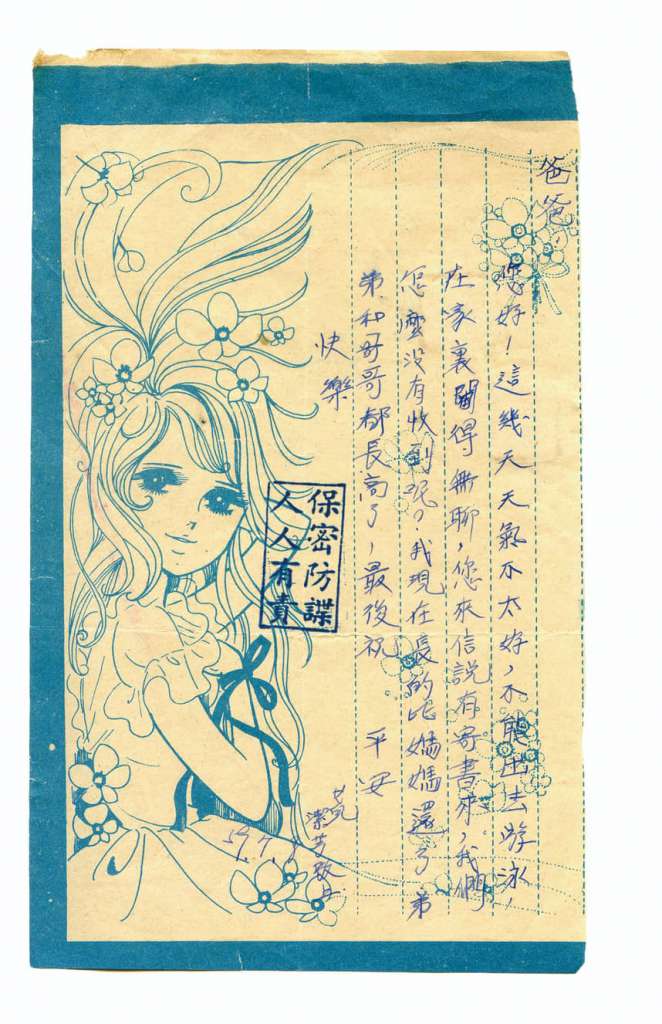 爸爸：
您好！這幾天天氣不太好，不能出去游泳，
在家裏得無聊，您來信說有寄書來，我們
怎麼没有收到呢？我現在長的比媽媽還了，弟
弟和哥哥都長高了，最後祝 平安
快樂
兒
潔芳敬上
59.7.
保密防諜
人人有責